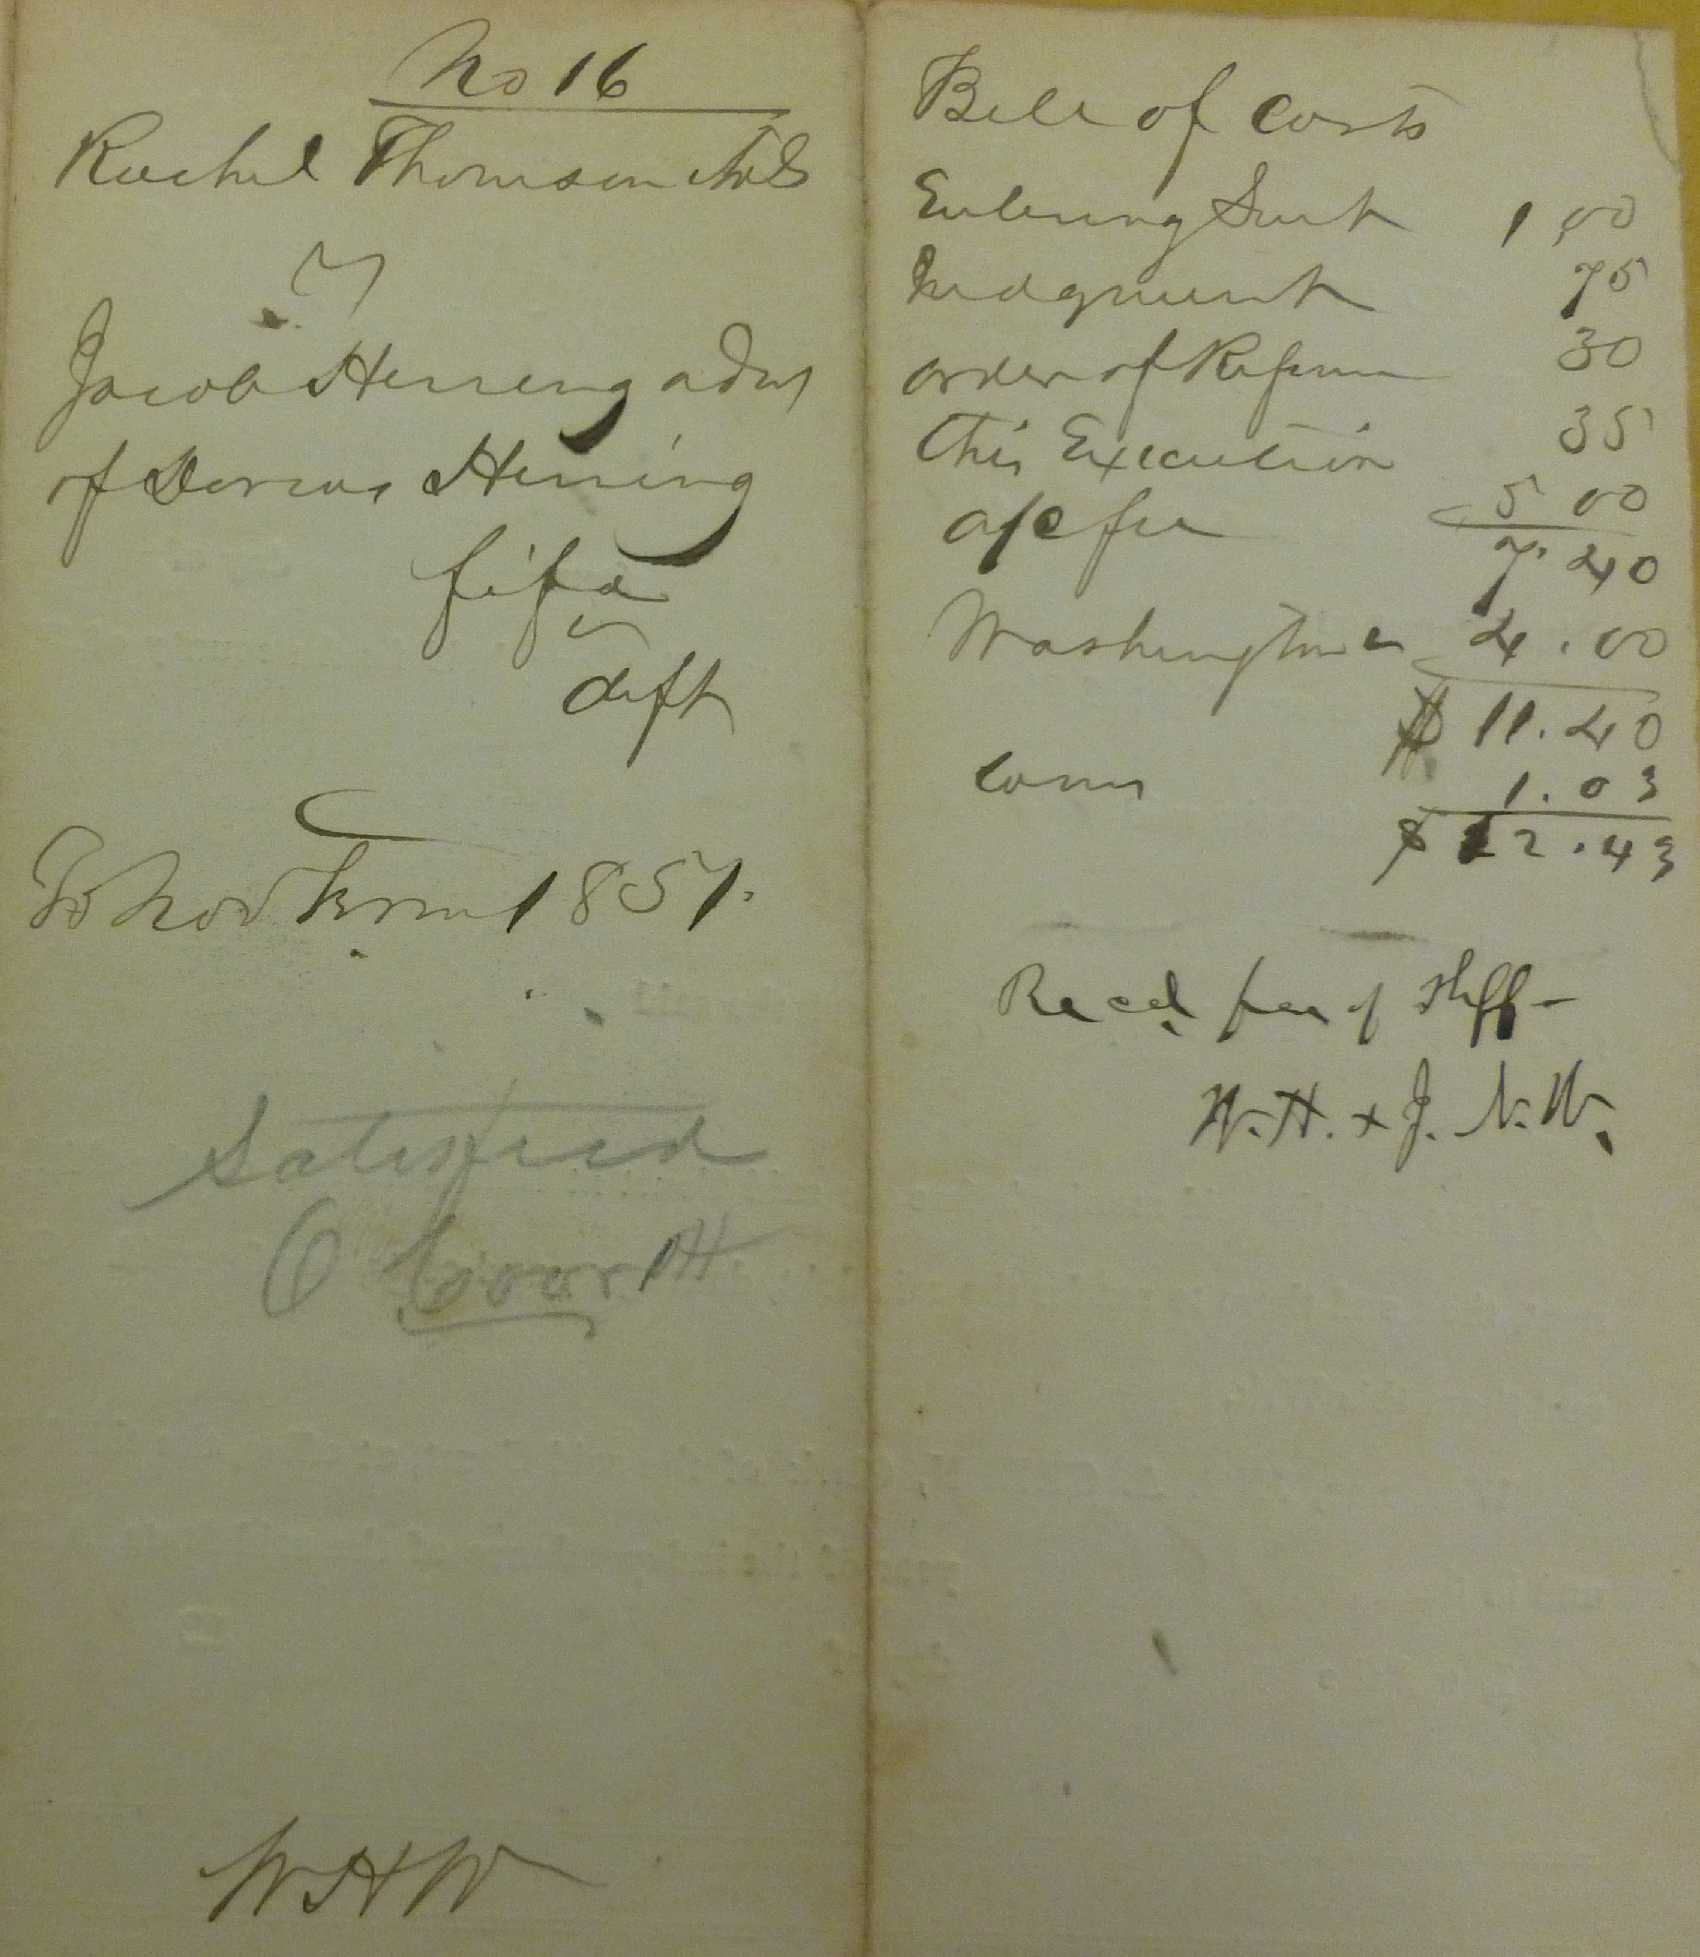 No 16
Rachel Thomson
vs
Jacob Herring adms
of Dorcas Herring
fi fa
vs
deft
To Nov Term 1857.
Satisfied
O Coor
WHW
Bill of Costs
Entering Suit 1,00
Judgment 75
order of Refernce 30
this Execution 35
a/c fee 5 00
7.40
Washington 4.00
$ 11.40
Coms 1.03
$ 12.43
Recd. fee of Shff -
W. H. & J. N. W.